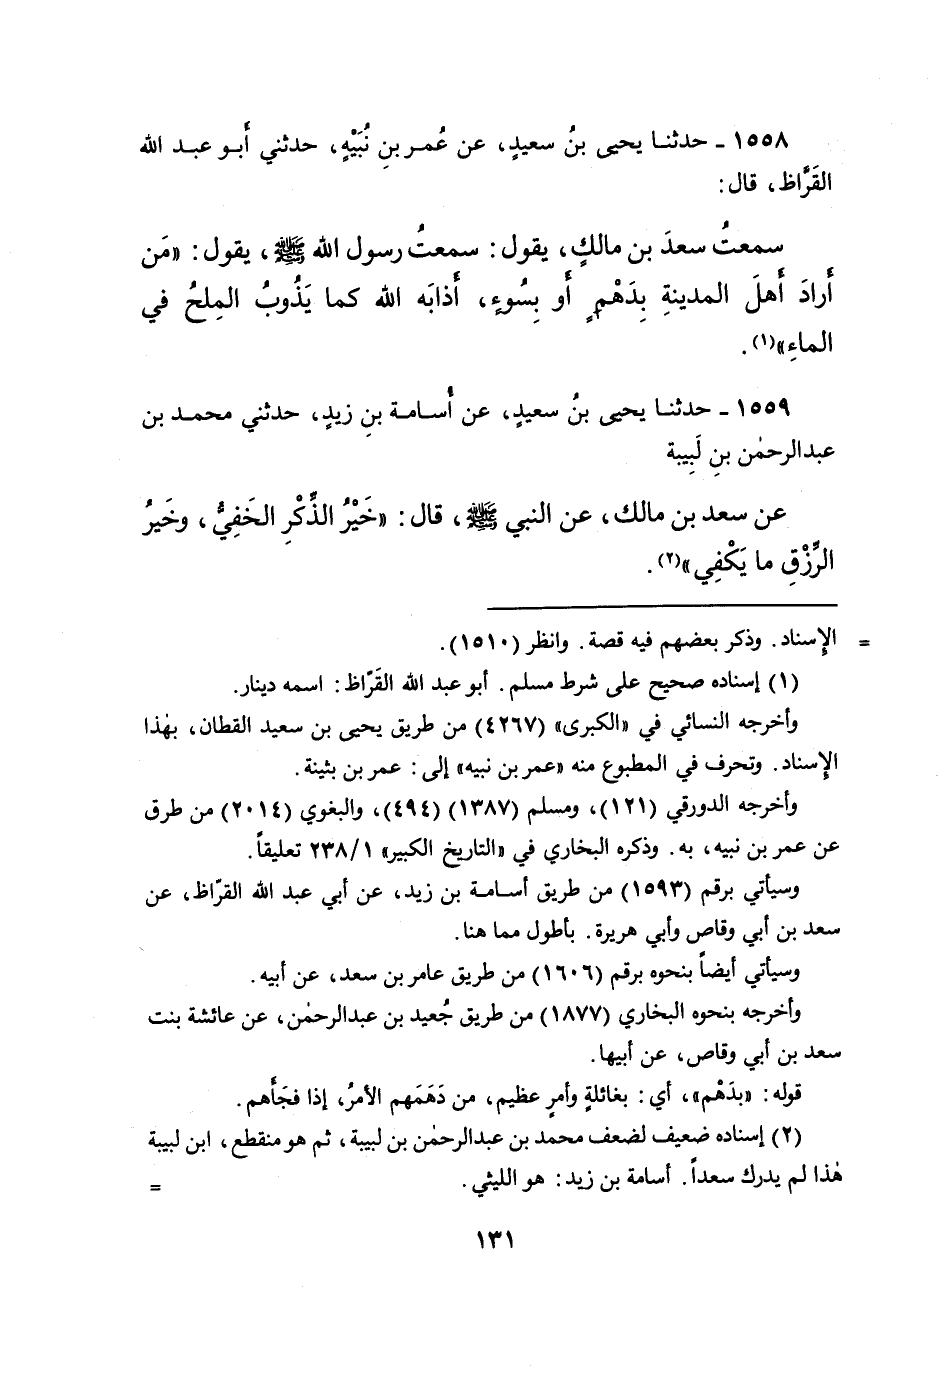 ١٥٥٨ ـ حدثنا يحيى بنُ سعيدٍ، عن عُمر بنِ نُبَيْهٍ، حدثني أَبو عبد الله
القَرَّاظ، قال:
سمعتُ سعدَ بن مالكٍ، يقول: سمعتُ رسول الله ﷺ، يقول: «مَن
أَرادَ أَهلَ المدينةِ بِدَهْمٍ أَو بِسُوءٍ، أَذابَه الله كما يَذُوبُ المِلحُ في
الماءِ»(١).
١٥٥٩ ـ حدثنا يحيى بنُ سعيدٍ، عن أُسامة بنِ زيدٍ، حدثني محمد بن
عبدالرحمٰن بنِ لَبِيبة
عن سعد بن مالك، عن النبي ﷺ، قال: «خَيْرُ الذِّكْرِ الخَفِيُّ، وخَيرُ
الرِّزْقِ ما يَكْفِي»(٢).
= الإسناد. وذكر بعضهم فيه قصة. وانظر (١٥١٠).
(١) إسناده صحيح على شرط مسلم. أبو عبد الله القَرّاظ: اسمه دينار.
وأخرجه النسائي في «الكبرى» (٤٢٦٧) من طريق يحيى بن سعيد القطان، بهٰذا
الإسناد. وتحرف في المطبوع منه «عمر بن نبيه» إلى: عمر بن بثينة.
وأخرجه الدورقي (١٢١)، ومسلم (١٣٨٧) (٤٩٤)، والبغوي (٢٠١٤) من طرق
عن عمر بن نبيه، به. وذكره البخاري في «التاريخ الكبير» ٢٣٨/١ تعليقاً.
وسيأتي برقم (١٥٩٣) من طريق أسامة بن زيد، عن أبي عبد الله القرّاظ، عن
سعد بن أبي وقاص وأبي هريرة. بأطول مما هنا.
وسيأتي أيضاً بنحوه برقم (١٦٠٦) من طريق عامر بن سعد، عن أبيه.
وأخرجه بنحوه البخاري (١٨٧٧) من طريق جُعيد بن عبدالرحمٰن، عن عائشة بنت
سعد بن أبي وقاص، عن أبيها.
قوله: «بدَهْم»، أي: بغائلةٍ وأمرٍ عظيم، من دَهَمَهم الأمرُ، إذا فجَأَهم.
(٢) إسناده ضعيف لضعف محمد بن عبدالرحمٰن بن لبيبة، ثم هو منقطع، ابن لبيبة
هٰذا لم يدرك سعداً. أسامة بن زيد: هو الليثي. =
١٣١